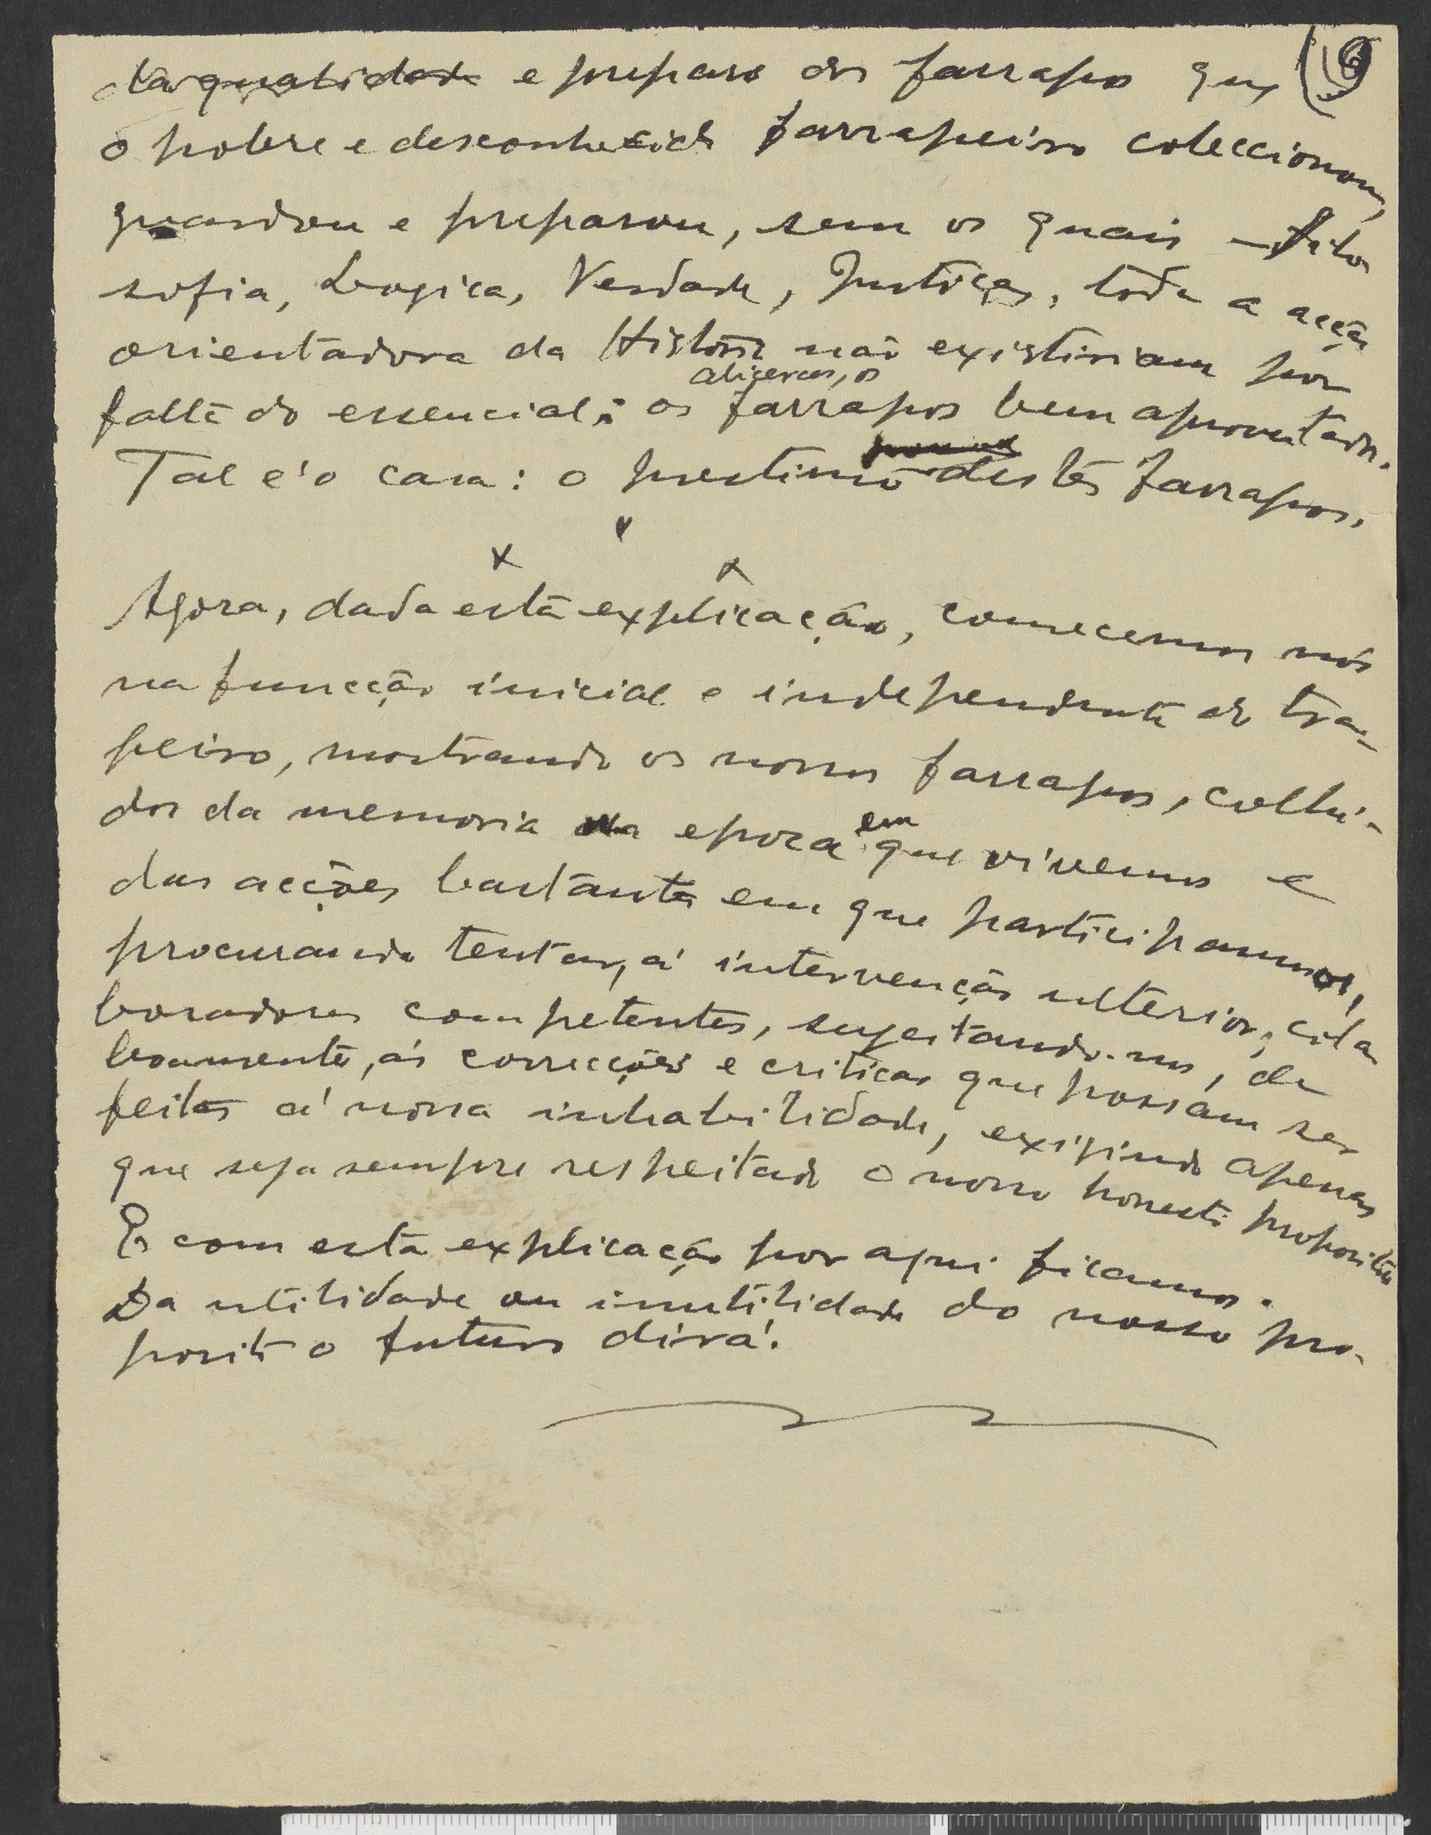 da qualidade e preparo dos farrapos que
o pobre e desconhecido farrapeiro coleccionou,
guardou e preparou, sem os quais — Filo
sofia, Logica, Verdade, Justiça, toda a acção
orientadora da História não existiriam por
alicerces, os
falta do essencial: os farrapos bem aproveitados.
Tal é o caso: o prestimo destes farrapos.
x x x
Agora, dada esta explicação, comecemos nós
na funcção inicial e independente do tra-
peiro, mostrando os nossos farrapos, colhi-
dos da memoria da epoca em que vivemos e
das acções bastantes em que participamos,
procurando tentar, á intervenção ulterior, cola
boradores competentes, sugeitando-nos, de
boamente, ás correcções e criticas que possam ser
feitas á nossa inhabilidade, exigindo apenas
que seja sempre respeitado o nosso honesto proposito
E com esta explicação por aqui ficamos.
Da utilidade ou inutilidade do nosso pro-
posito o futuro dirá.